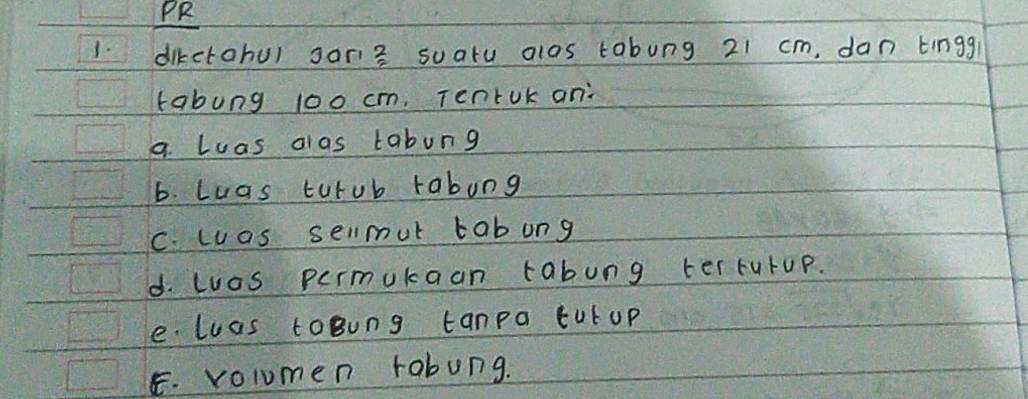 PR
1. diketahui jari2 suatu alas tabung 21 cm, dan tinggi
tabung 100 cm. Tentukan:
a. Luas alas tabung
b. Luas tutub tabung
c. Luas selimut tabung
d. Luas permukaan tabung tertutup.
e. Luas tabung tanpa tutup
F. volumen tabung.